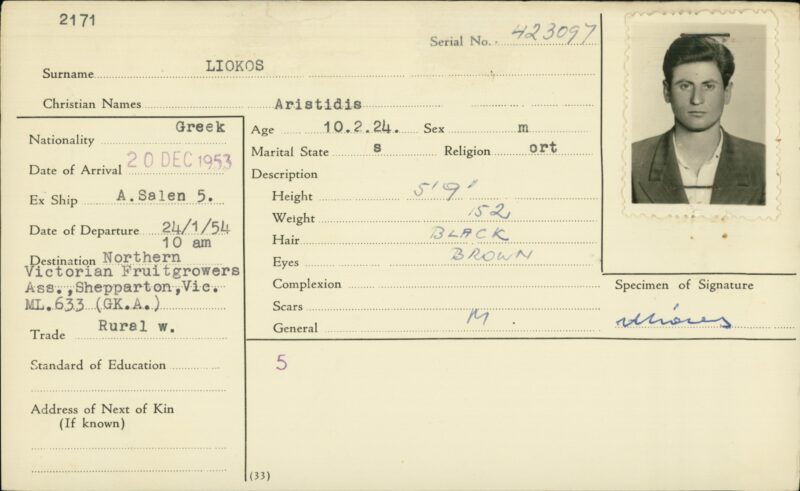 2171
Serial No. 423097
Surname LIOKOS
Christian Names Aristidis
Nationality Greek
Date of Arrival 20 DEC 1953
Ex Ship A.Salen 5.
Date of Departure 24/1/54
10 am
Destination Northern
Victorian Fruitgrowers
Ass.,Shepparton,Vic.
ML.633 (GK.A.)
Trade Rural w.
Standard of Education
Address of Next of Kin
(If known)
Age 10.2.24. Sex m
Marital State s Religion ort
Description
Height 5'9"
Weight 152
Hair BLACK
Eyes BROWN
Complexion
Scars
General M
5
(33)
Specimen of Signature